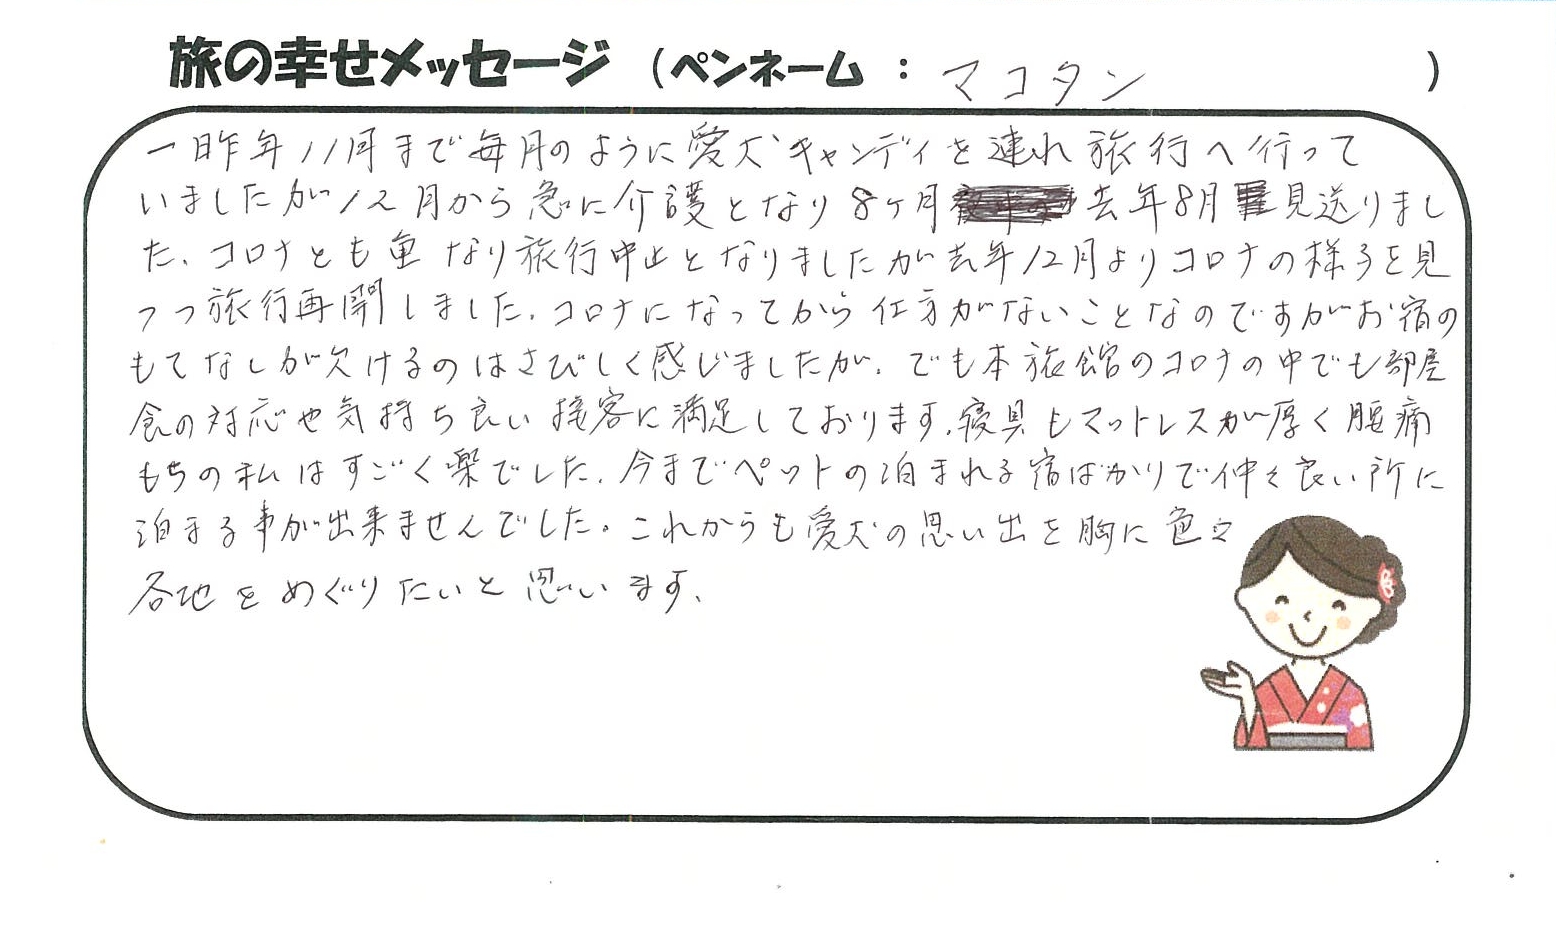 旅の幸せメッセージ (ペンネーム : マコタン )
一昨年11月まで毎月のように愛犬キャンディを連れ旅行へ行って
いましたが12月から急に介護となり8ヶ月 去年8月 見送りまし
た、コロナとも重なり旅行中止となりましたが去年12月よりコロナの様子を見
つつ旅行再開しました、コロナになってから仕方がないことなのですがお宿の
もてなしが欠けるのはさびしく感じましたが、でも本旅館のコロナの中でも部屋
食の対応や気持ち良い接客に満足しております、寝具もマットレスが厚く腰痛
もちの私はすごく楽でした、今までペットの泊まれる宿ばかりで仲々良い所に
泊まる事が出来ませんでした。これからも愛犬の思い出を胸に色々
各地をめぐりたいと思います、